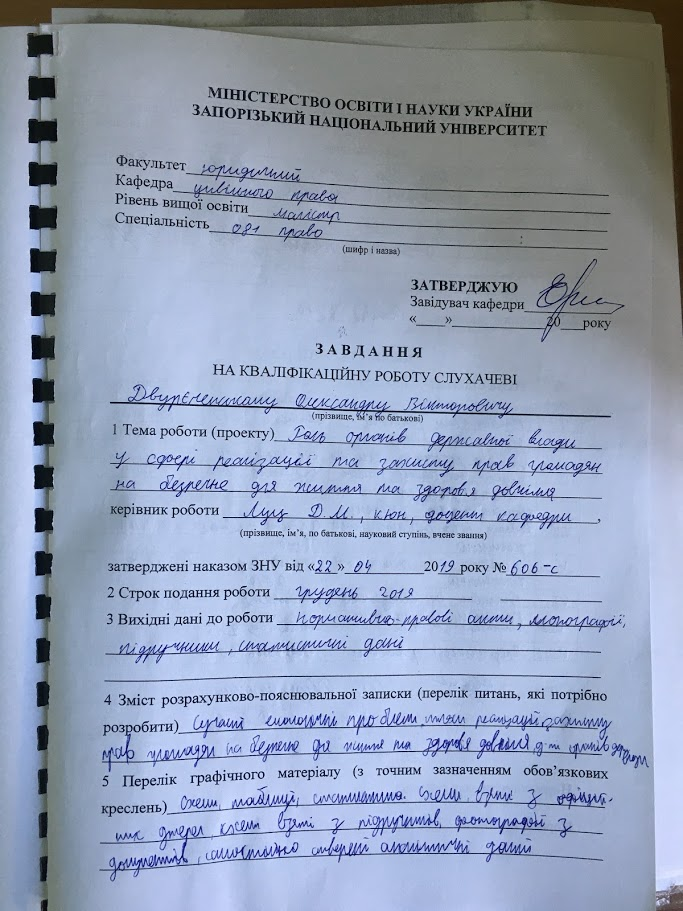 МІНІСТЕРСТВО ОСВІТИ І НАУКИ УКРАЇНИ
ЗАПОРІЗЬКИЙ НАЦІОНАЛЬНИЙ УНІВЕРСИТЕТ
Факультет юридичний
Кафедра цивільного права
Рівень вищої освіти магістр
Спеціальність 081 право
(шифр і назва)
ЗАТВЕРДЖУЮ
Завідувач кафедри
«____»____________20___року
ЗАВДАННЯ
НА КВАЛІФІКАЦІЙНУ РОБОТУ СЛУХАЧЕВІ
Двурєченському Олександру Вікторовичу
(прізвище, ім’я по батькові)
1 Тема роботи (проекту) Роль органів державної влади
у сфері реалізації та захисту прав громадян
на безпечне для життя та здоров'я довкілля
керівник роботи Луц Д.М., кюн, доцент кафедри,
(прізвище, ім’я, по батькові, науковий ступінь, вчене звання)
затверджені наказом ЗНУ від «22» 04 2019 року № 606-с
2 Строк подання роботи грудень 2019
3 Вихідні дані до роботи Нормативно-правові акти, монографії,
підручники, статистичні дані
4 Зміст розрахунково-пояснювальної записки (перелік питань, які потрібно
розробити) Сучасні екологічні проблеми, реалізації захисту
прав громадян на безпечне для життя та здоров'я довкілля, органів
5 Перелік графічного матеріалу (з точним зазначенням обов’язкових
креслень) Схеми, таблиці, статистика. Схеми взяті з
джерел взяті з підручників, фотографії з
документів, самостійно створені аналітичні дані